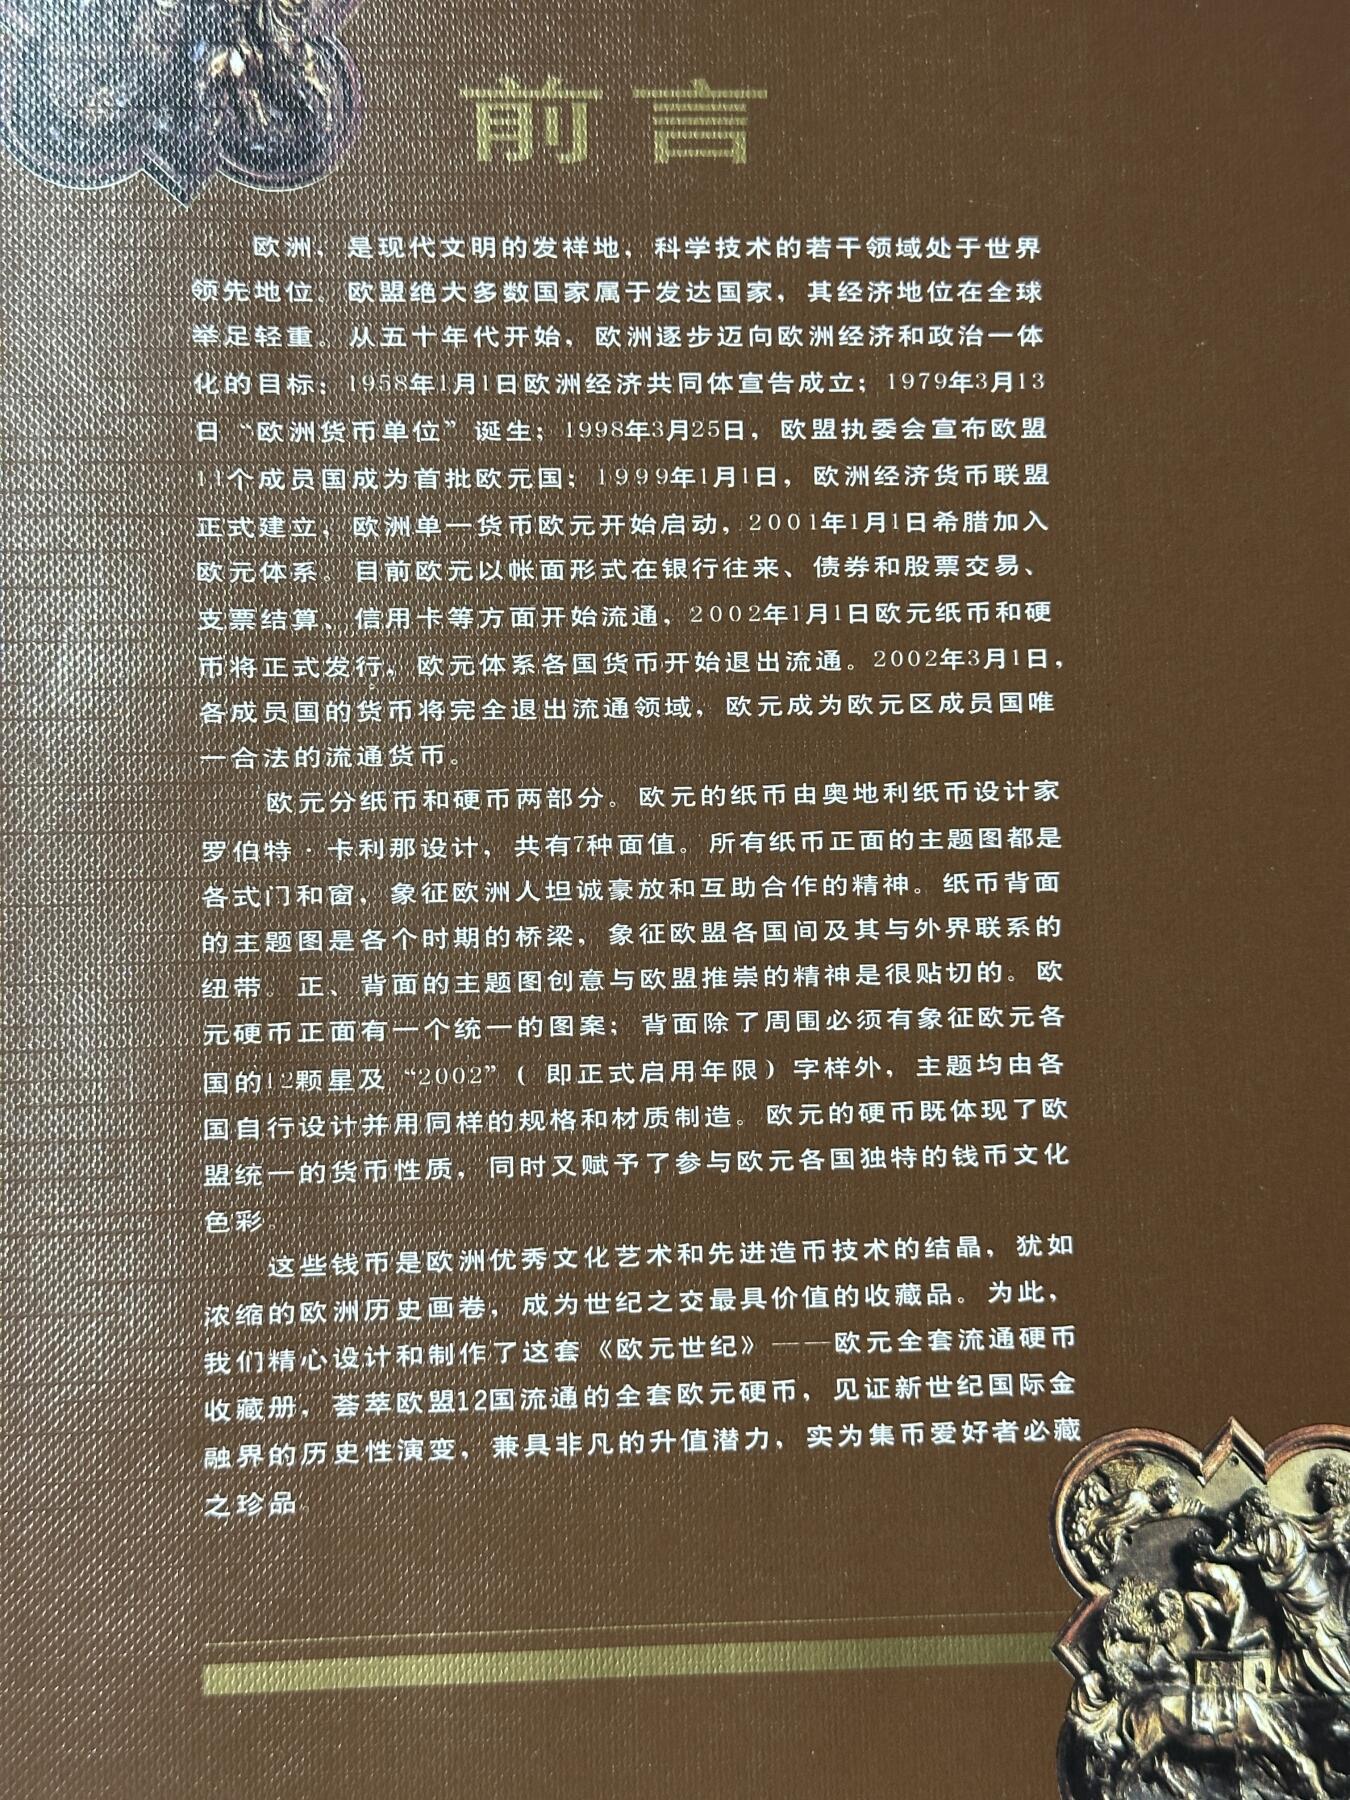 前言
欧洲，是现代文明的发祥地，科学技术的若干领域处于世界
领先地位。欧盟绝大多数国家属于发达国家，其经济地位在全球
举足轻重。从五十年代开始，欧洲逐步迈向欧洲经济和政治一体
化的目标：1958年1月1日欧洲经济共同体宣告成立；1979年3月13
日“欧洲货币单位”诞生；1998年3月25日，欧盟执委会宣布欧盟
11个成员国成为首批欧元国；1999年1月1日，欧洲经济货币联盟
正式建立，欧洲单一货币欧元开始启动，2001年1月1日希腊加入
欧元体系。目前欧元以帐面形式在银行往来、债券和股票交易、
支票结算、信用卡等方面开始流通，2002年1月1日欧元纸币和硬
币将正式发行，欧元体系各国货币开始退出流通。2002年3月1日，
各成员国的货币将完全退出流通领域，欧元成为欧元区成员国唯
一合法的流通货币。
欧元分纸币和硬币两部分。欧元的纸币由奥地利纸币设计家
罗伯特·卡利那设计，共有7种面值。所有纸币正面的主题图都是
各式门和窗，象征欧洲人坦诚豪放和互助合作的精神。纸币背面
的主题图是各个时期的桥梁，象征欧盟各国间及其与外界联系的
纽带。正、背面的主题图创意与欧盟推崇的精神是很贴切的。欧
元硬币正面有一个统一的图案；背面除了周围必须有象征欧元各
国的12颗星及“2002”（即正式启用年限）字样外，主题均由各
国自行设计并用同样的规格和材质制造。欧元的硬币既体现了欧
盟统一的货币性质，同时又赋予了参与欧元各国独特的钱币文化
色彩。
这些钱币是欧洲优秀文化艺术和先进造币技术的结晶，犹如
浓缩的欧洲历史画卷，成为世纪之交最具价值的收藏品。为此，
我们精心设计和制作了这套《欧元世纪》——欧元全套流通硬币
收藏册，荟萃欧盟12国流通的全套欧元硬币，见证新世纪国际金
融界的历史性演变，兼具非凡的升值潜力，实为集币爱好者必藏
之珍品。